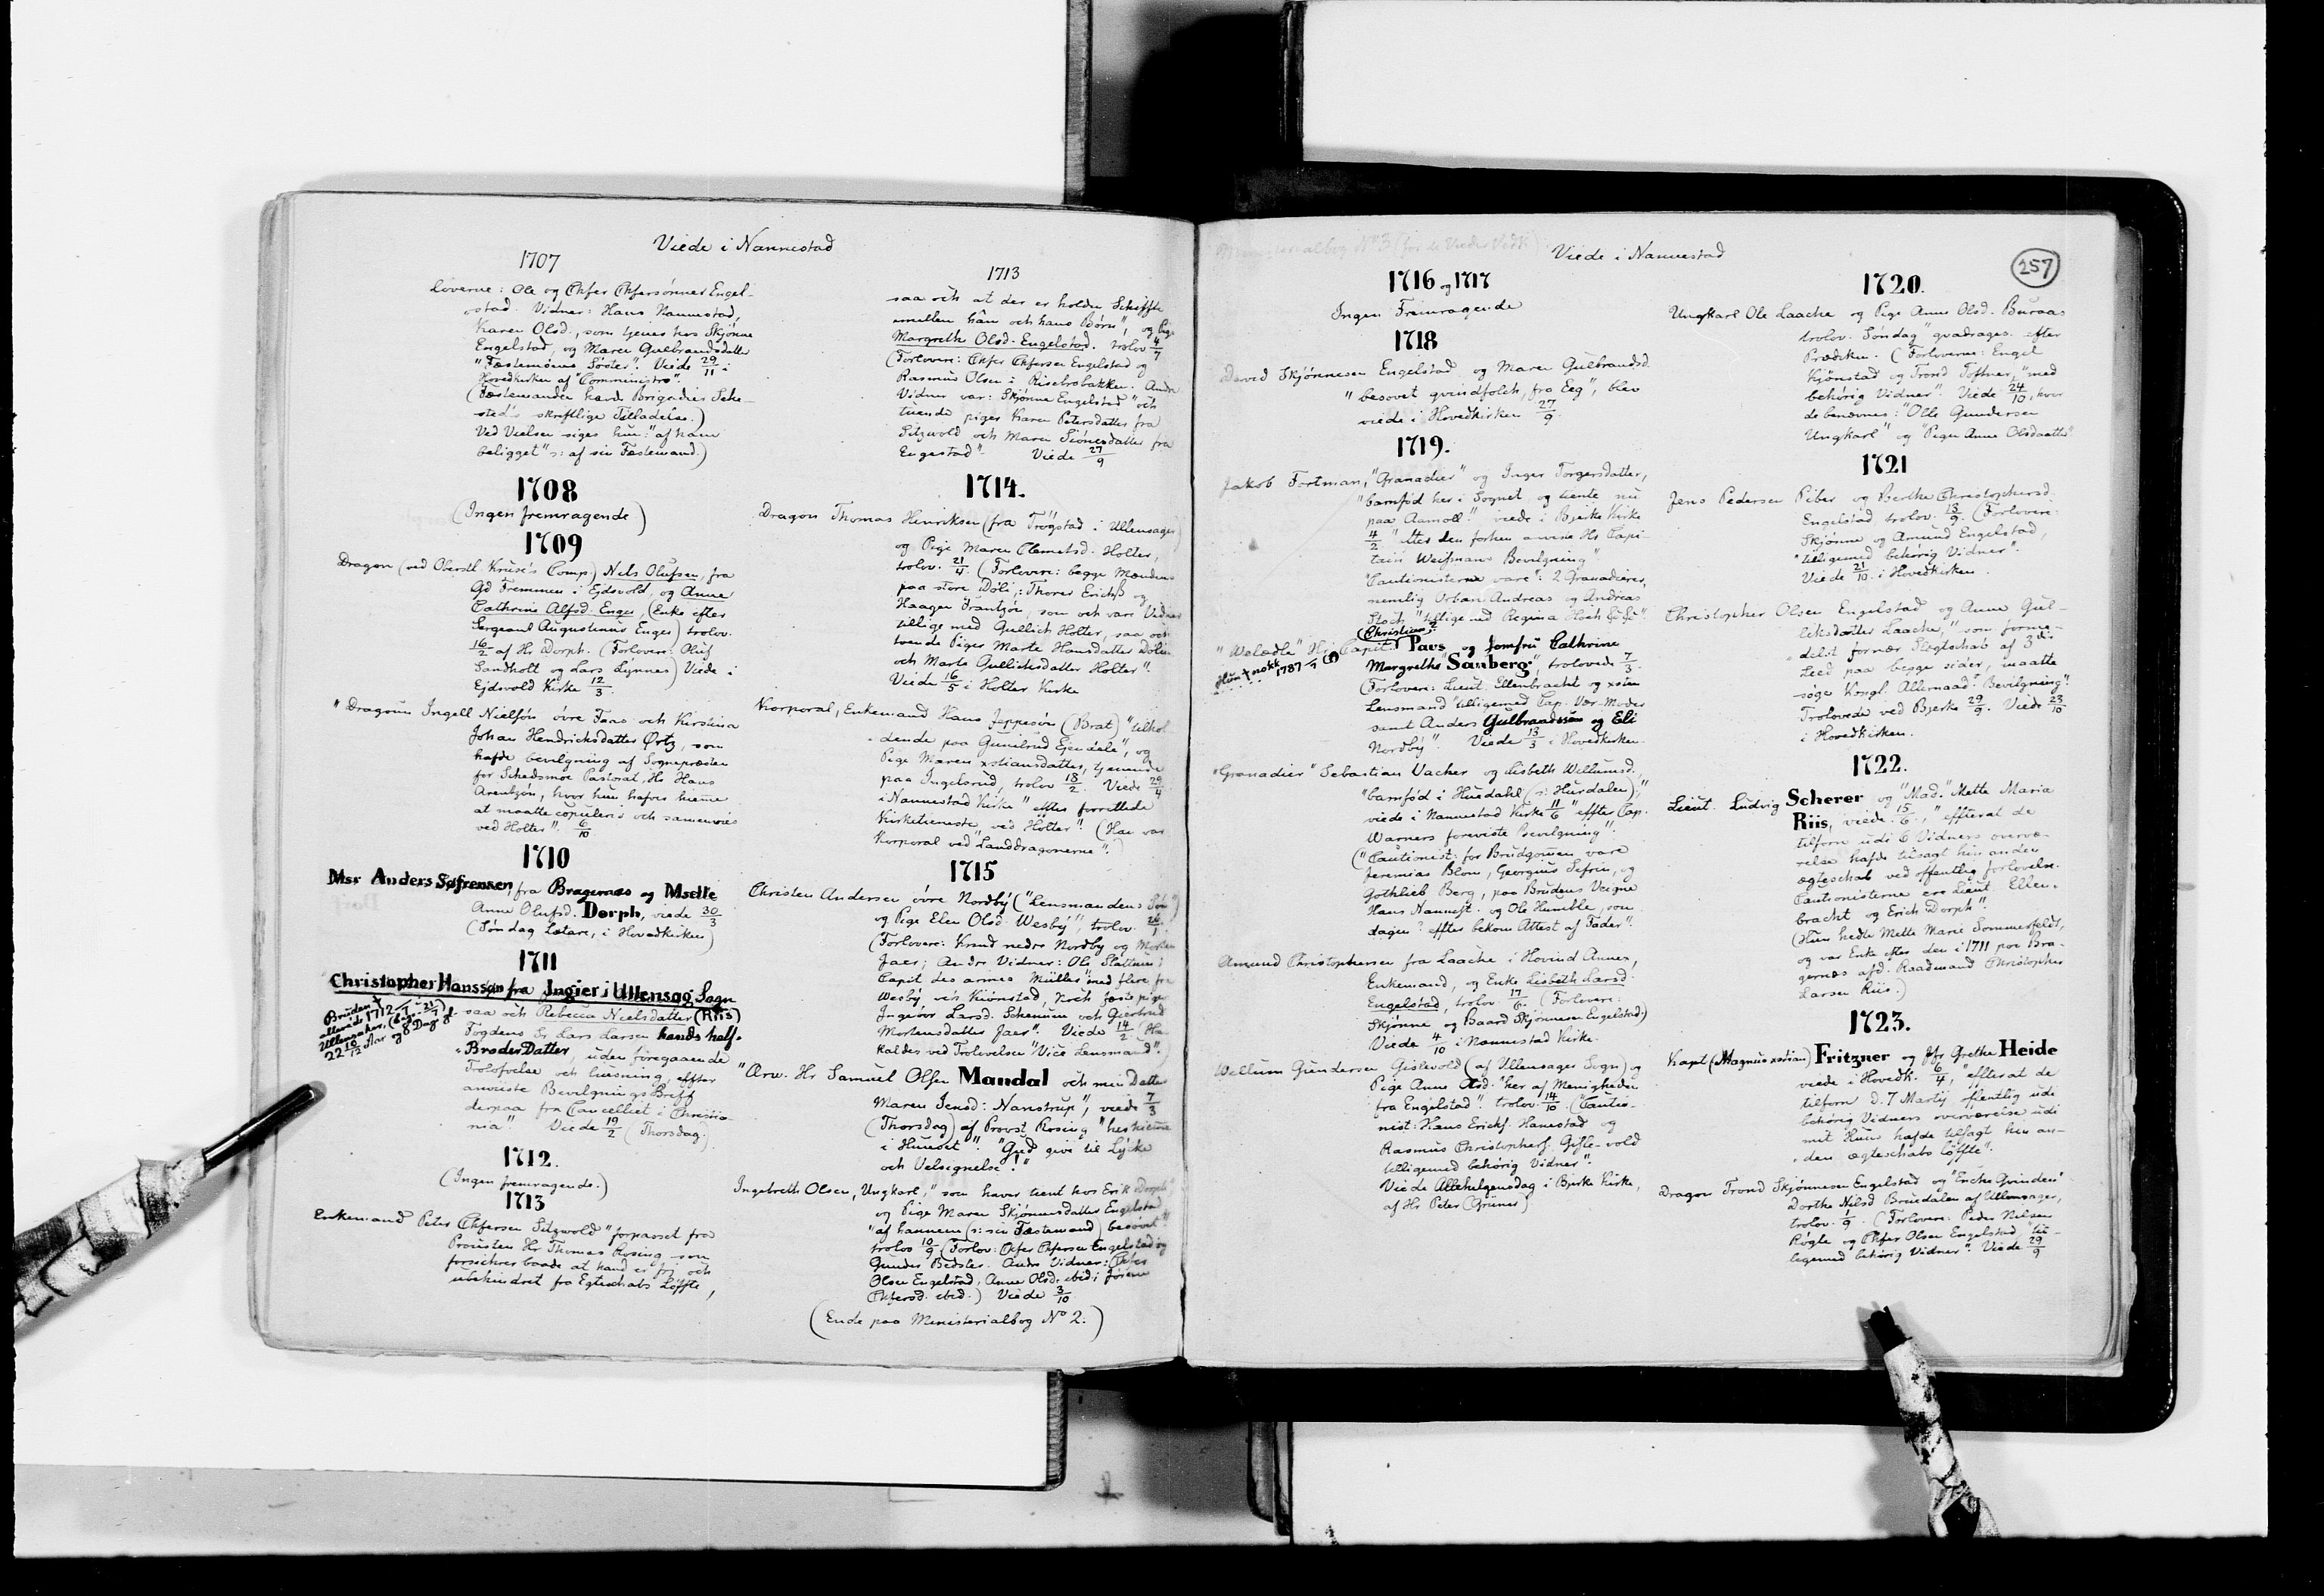 Viede i Nannestad
1707
Loverne: Ole og Chfer Chfersønner Engel-
stad. Vidner: Hans Nannestad,
Karen Olsd., som tjener hos Skjønne
Engelstad, og Maren Gulbrandsdatter
"Festemøens Söster". Viede 29/11 i
Hovedkirken af "Comministro".
(Festemanden havde Brigadier Sehe-
steds skriftlige Tilladelse.)
Ved Vielsen siges hun: "af ham
beligget" ɔ: af sin Festemand.)
1708
(Ingen fremragende)
1709
Dragon (ved Oberstl. Kruse's Comp.) Nels Olufsen, fra
Gd Fremmen i Ejdsvold, og Anne
Cathrine Alfsd. Enger, (Enke efter
Sergeant Augustinus Enger) trolov.
16/2 af Hr Dorph. (Forlovere: Oluf
Sandholt og Lars Lynnes) Viede i
Ejdsvold Kirke 12/3.
"Dragoun Ingell Nielsøn övre Faas och Kirstina
Johan Hendrichsdatter Ørtz, som
hafde bevilgning af Sognepresten
for Schedsmoe Pastorat, Hr Hans
Arentzøn, hvor hun hafver hieme
at maatte copuleris och samenvies
ved Holter". 6/10
1710
Msr Anders Søfrensen fra Bragernæs og Mselle
Anne Olufsd. Dorph, viede 30/3
(Søndag Lætare, i Hovedkirken)
1711
Christopher Hanssøn fra Ingier i Ullensag Sogn
saa och Rebecca Nielsdatter (Riis)
Fogdens Sr Lars Larsen hands half-
Broder Datter, uden foregaaende
Trolofvelse och liusning, effter
anviiste Bevilgnings Breff
derpaa fra Cancelliet i Christia-
nia" Viede 19/2 (Thorsdag.)
Bruden †
allerede 1712
Ullensaker,
22 10/12 Aar og 8 Dage gl.
1712.
(Ingen fremragende.)
1713
Enkemand Peter Chfersen Sitzwold "forpasset fra
Prousten Hr Thomas Rosing som
forsichrer baade at hand er fri och
ubehindret fra Egteschabs Løffte,
1713
saa och at der er holden Schiffte
imellem ham och hans Börn", og Pige
Margreth Olsd. Engelstad. trolov. 4/7
(Forlovere: Chfer Chfersen Engelstad og
Rasmus Olsen i Risebrobakken. Andre
Vidner var: Skjønne Engelstad "och
tuende piger Karen Petersdatter fra
Sitzwold och Maren Siönesdatter fra
Engestad". Viede 27/9
1714.
Dragon Thomas Henriksen (fra Trögstad i Ullensager)
og Pige Maren Clemetsd. Holter,
trolov. 21/4. (Forlovere: begge Mændene
paa store Döli: Thorer Erichss og
Haagen Frantzön, som och vare Vidner
tillige med Gullich Holter, saa och
tvende Piger Marte Hansdatter Dölin
och Marte Gullichsdatter Holter".
Viede 16/5 i Holter Kirke
Korporal, Enkemand Hans Jeppesön (Brat) "tilhol-
dende paa Gunilrud Ejendele", og
Pige Maren xstiansdatter, tjenende
paa Ingelsrud, trolov 18/2. Viede 29/4
i Nannestad Kirke "effter forrettede
Kirketieneste ved Holter". (Han var
Korporal ved "Landdragonerne".)
1715
Christen Andersen övre Nordbÿ ("Lensmandens Søn")
og Pige Elen Olsd. Wesbÿ", trolov. 26/1.
(Forlovere: Knud nedre Nordby og Morten
Jaer; Andre Vidner: Ole Slattum,
Capit des armes Müller "med flere fra
Wesbÿ, och Kiönstad, noch feste piger
Ingebor Larsd. Schennen och Giertrud
Mortensdatter Jaer". Viede 14/2. (Han
kaldes ved Trolovelsen "Vice Lensmand".)
"Ærw. Hr Samuel Olsen Mandal och min Datter
Maren Jensd: Nanstrup", viede 7/3
(Thorsdag) af Provst Rosing "her hieme
i Huuset". "Gud give til Lÿcke
och Velsignelse!"
Ingebreth Olsen, Ungkarl, "som haver tient hos Erik Dorph"
og Pige Maren Skjönnesdatter Engelstad
"af hannem (ɔ: sin Festemand) besövet".
trolov 10/9 (Forlov: Chfer Chfersen Engelstad og
Gunder Bedster. Andre Vidner: Chfer
Olsen Engelstad, Anne Olsd. ibid;
Chfersd. ibid.) Viede 3/10
(Ende paa Ministerialbog No 2.)
Ministerialbog No 3 (for de Viedes Vedk.)
Viede i Nannestad
257
1716 og 1717
Ingen Fremragende
1718
David Skjönnesen Engelstad og Maren Gulbrandsd.
"besovet qvindfolch, fra Eeg", blev
viede i Hovedkirken 27/9.
1719.
Jakob Fortman, "Granadier" og Inger Torgersdatter,
"barnföd her i Sognet, og tiente nu
paa Aamoll" viede i Bjerke Kirke
4/2 "efter den forhen anviste Hr Capi-
tain Weismans Bevilgning"
"Cautionisterne vare": 2 Granadierer,
nemlig Urban Andreas og Andreas
Stoch "tillige med Regina
"Welædle" Hr Capit. (Christian?) Paus og Jomfru Cathrine
Margrethe Sanberg", trolovede 7/3.
Hun † nokk
1787
(Forlovere: Lieut. Ellenbracht og xsten
Lensmand "tilligemed Cap. Vær-Moder
samt Anders Gulbrandssøn og Eli
Nordbÿ". Viede 13/3 i Hovedkirken.
"Granadier" Sebastian Vacher og Lisbeth Willumsd.,
"barnföd i Huedahl (ɔ: Hurdalen)",
viede i Nannestad Kirke 11/6 "effter Cap.
Warners foreviste Bevilgning".
("Cautionist: for Brudgommen vare
Jeremias Blom, Georgius Sefrin, og
Gothlieb Berg, paa Brudens Veigne
Hans Nannest. og Ole Humble, som
dagen? effter bekom Attest af Fader".
Amund Christophersen fra Laache i Hovind Annex,
Enkemand, og Enke Lisbeth Larsd.
Engelstad, trolov. 17/6. (Forlovere:
Skjønne og Baard Skjønnesen Engelstad.)
Viede 4/10 i Nannestad Kirke.
Willum Gundersen Gislevold (af Ullensager Sogn) og
Pige Anne Olsd. "her af Menigheden
fra Engelstad". trolov. 14/10. (Cautio-
nist: Hans Erichs. Hanestad og
Rasmus Christophers. Gisle-vold
tilligemed behörig Vidner".
Viede Allehelgensdag i Bjerke Kirke,
af Hr Peter (Grüner)
1720.
Ungkarl Ole Laache og Pige Anne Olsd. Buraas
trolov. Søndag "qvadrages. efter
Prædiken. (Forloverne: Engel
Kjönstad og Trond Toftner, "med
behörig Vidner". Viede 24/10, hvor
de benævnes: "Olle Gundersen
Ungkarl" og "Pigen Anne Olsdaatter".
1721
Jens Pedersen Piber og Berthe Christophersd.
Engelstad trolov. 13/9. (Forlovere:
Skjønne og Amund Engelstad,
"tilligemed behörig Vidner".
Viede 21/10. i Hovedkirken.
Christopher Olsen Engelstad og Anne Gul-
liksdatter Laache, "som forme-
delst fornær Slegtschab af 3die
Leed paa begge sider, maatte
söge Kongl. Allernaad. Bevilgning".
Trolovede ved Bjerke 29/9. Viede 23/10
i Hovedkirken.
1722.
Lieut. Ludvig Scherer og "Mad." Mette Maria
Riis, viede 15/6, "effterat de
tilforn udi 6 Vidners overvæ-
relse hafde tilsagt hin anden
ægteschab ved offentlig forlovelse.
Cautionisterne ere Lieut. Ellen-
bracht og Erich Dorph".
(Hun hedte Mette Marie Sommerfeldt,
og var Enke efter den i 1711 paa Bra-
gernæs afd. Raadmand Christopher
Larsen Riis.)
1723.
Kapt (Magnus xstian) Fritzner og Jfr Grethe Heide
viede i Hovedk. 6/4, "effterat de
tilforn d. 7 Martij offentlig udi
behörig Vidners overværelse udi
mit Huus hafde tilsagt hin an-
den ægteschabs löffte".
Dragon Trond Skjønnesen Engelstad og "Enche Qvinden"
Dorthe Nilsd Bruedalen af Ullensager,
trolov. 1/9. (Forlovere: Peder Nilsen
Røgle og Chfer Olsen Engelstad "til-
ligemed behörig Vidner". Viede 29/9